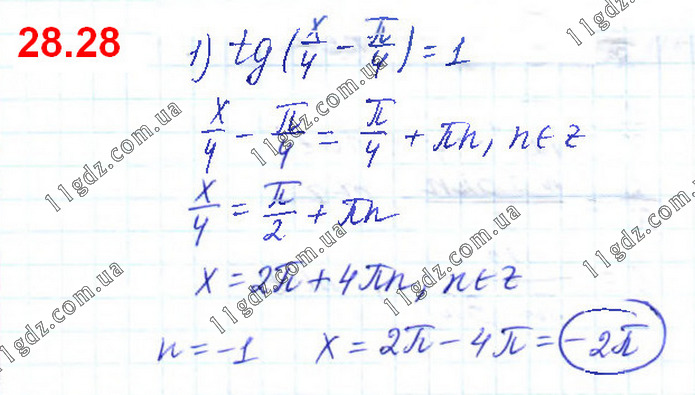 28.28
1) tg(x/4 - π/4) = 1
x/4 - π/4 = π/4 + πn, n ∈ z
x/4 = π/2 + πn
x = 2π + 4πn, n ∈ z
n = -1 x = 2π - 4π = -2π
11gdz.com.ua
11gdz.com.ua
11gdz.com.ua
11gdz.com.ua
11gdz.com.ua
11gdz.com.ua
11gdz.com.ua